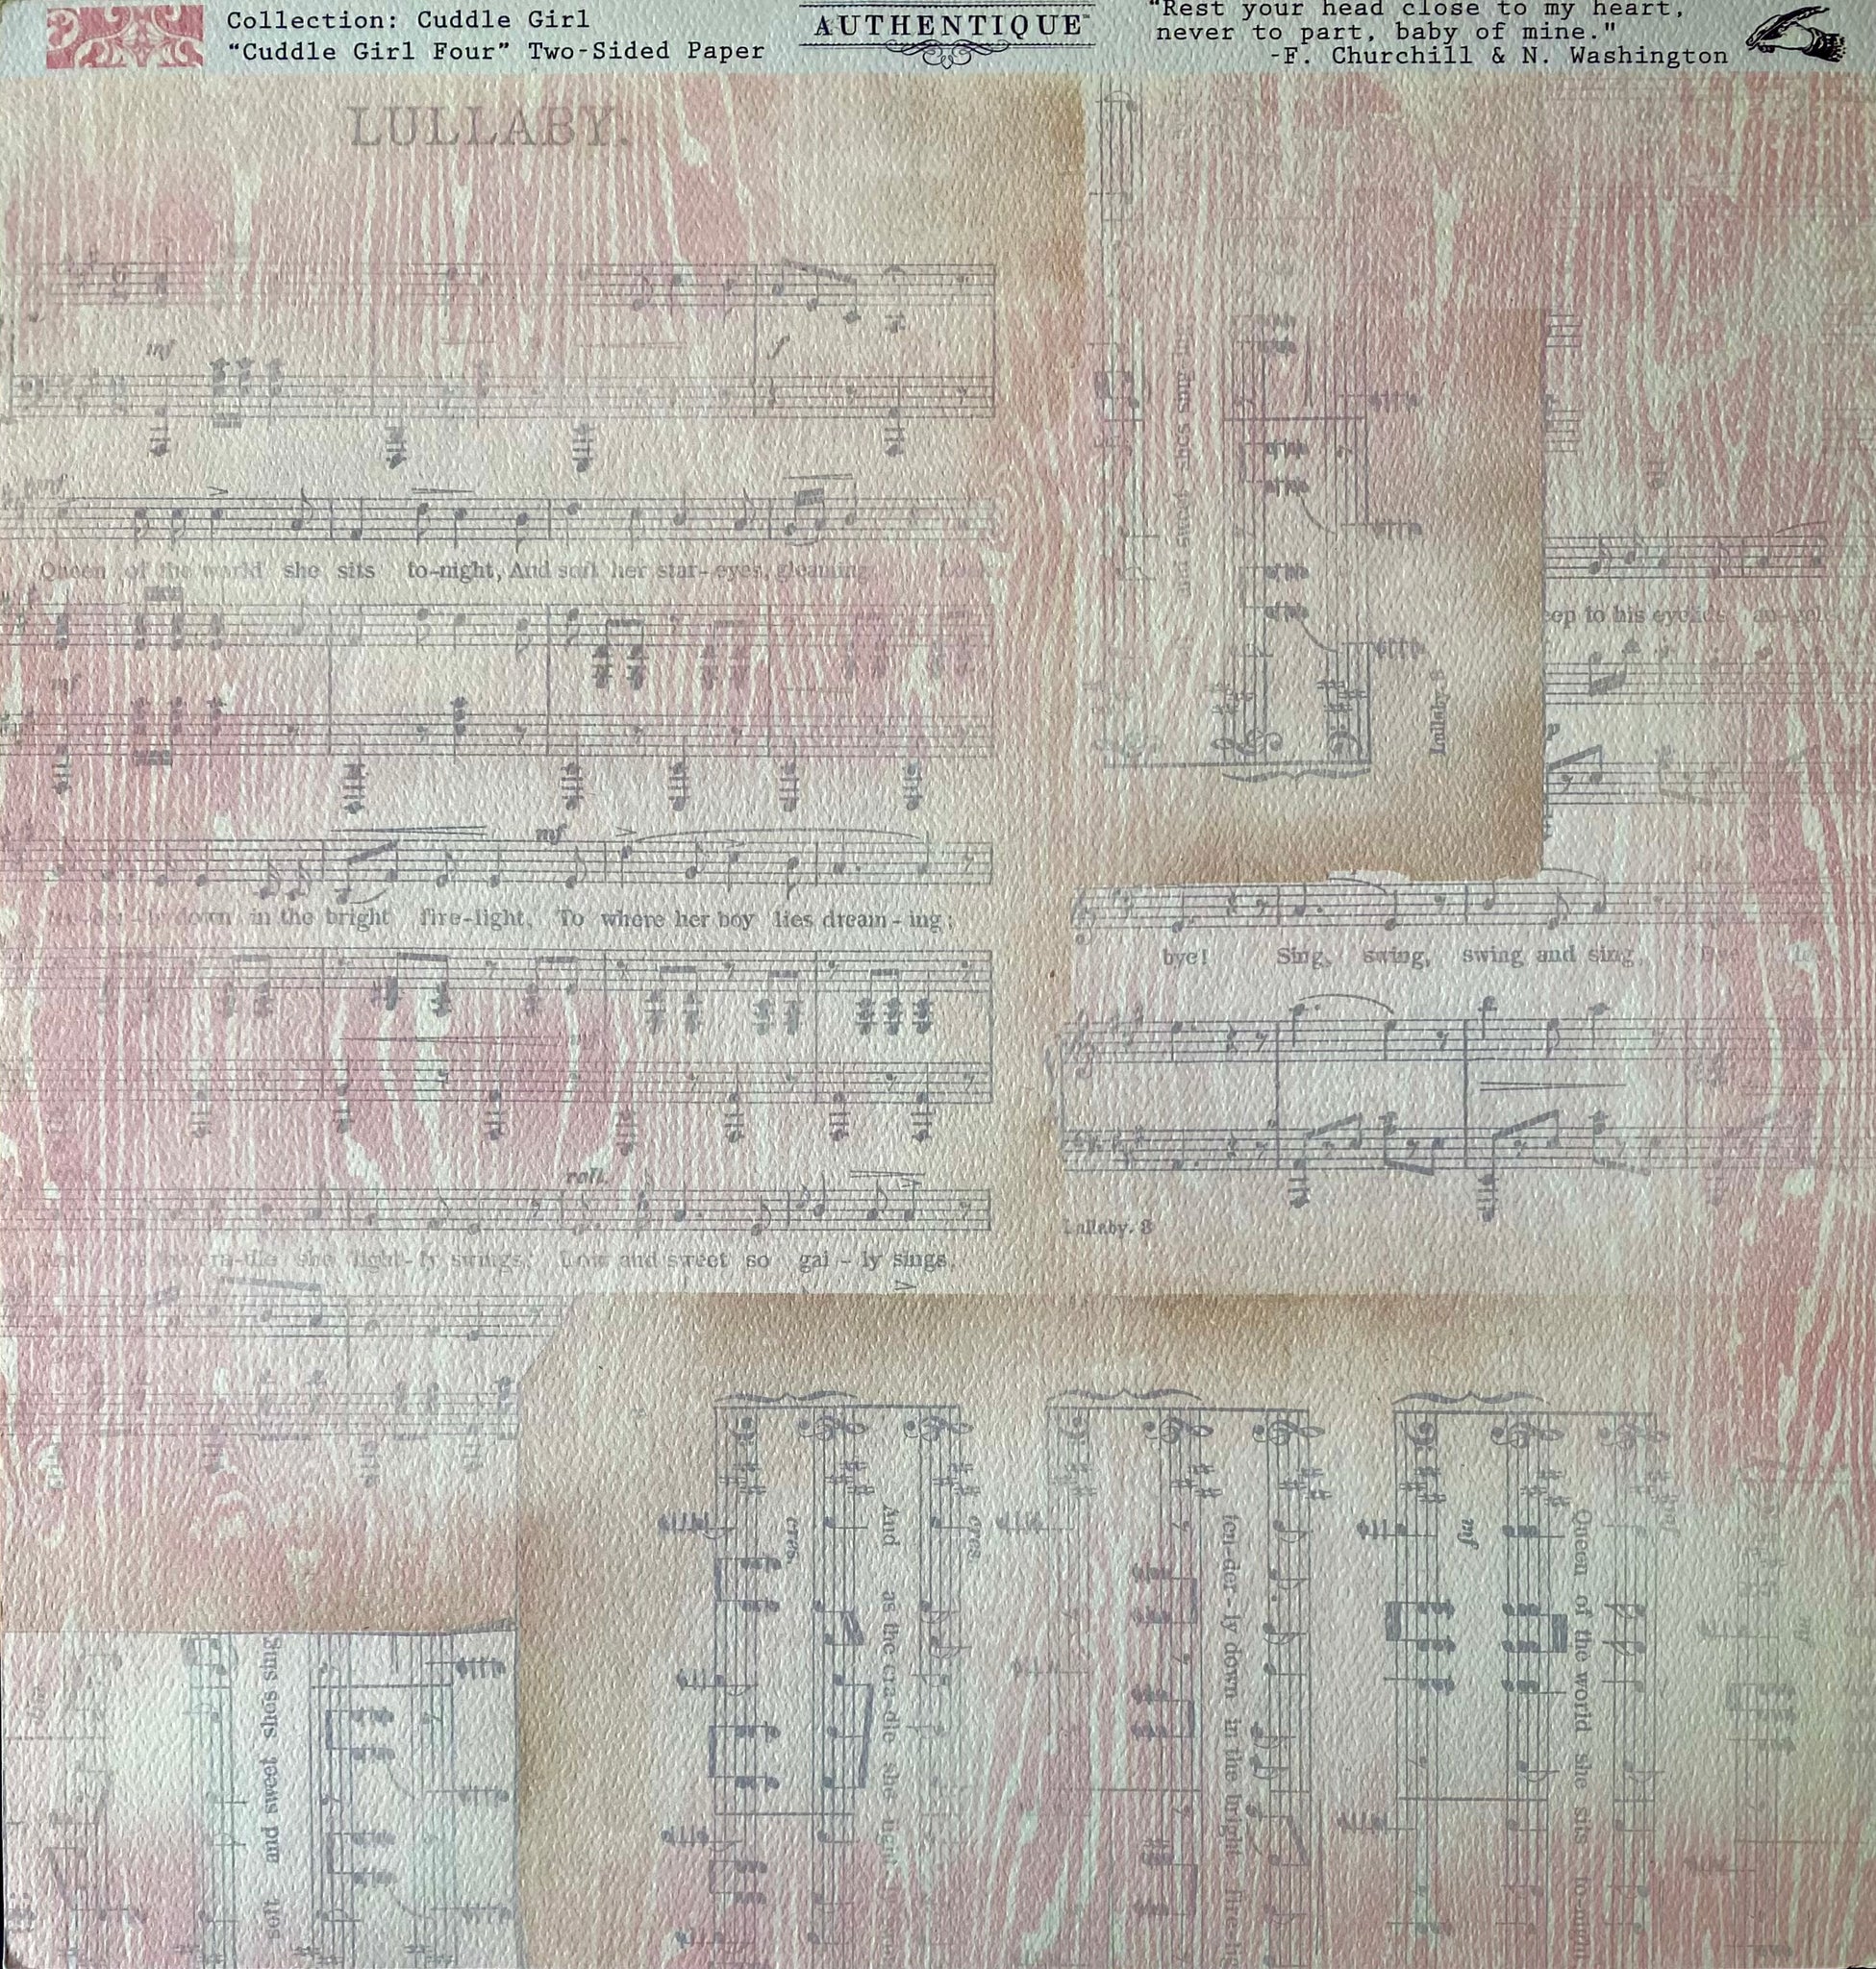 Collection: Cuddle Girl
"Cuddle Girl Four" Two-Sided Paper
AUTHENTIQUE™
"Rest your head close to my heart,
never to part, baby of mine."
-F. Churchill & N. Washington
LULLABY.
mf
f
Queen of the world she sits to-night, And soft her star-eyes, gleaming
mf
mf
down in the bright fire-light, To where her boy lies dream-ing;
rall.
as the cra-dle she light-ly swings, Low and sweet so gai-ly sings,
and sweet she's sing
Lullaby. 8
eep to his eyelids
bye! Sing, swing, swing and sing,
f
Lullaby. 8
soft and sweet she's sing
cres.
And as the cra-dle she light
cres.
ten-der-ly down in the bright fire-lig
mf
Queen of the world she sits to-night